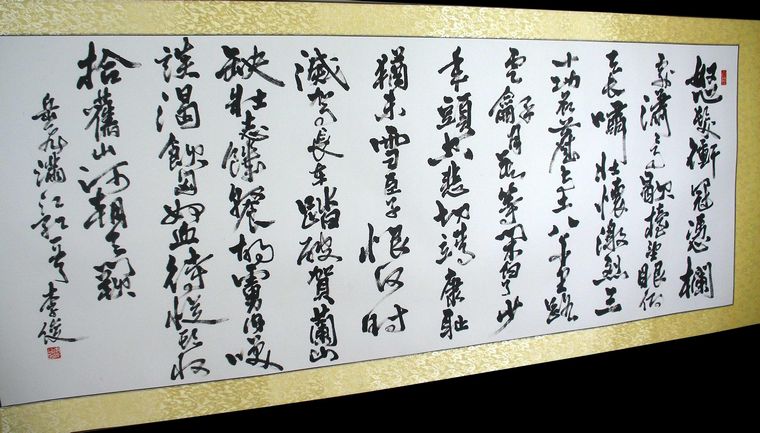 怒髮衝冠憑欄
處瀟瀟雨歇抬望眼仰
天長嘯壯懷激烈三
十功名塵与土八千里路
雲和月莫等閒白了少
年頭空悲切靖康恥
猶未雪臣子恨何時
滅駕長車踏破賀蘭山
缺壯志飢餐胡虜肉笑
談渴飲匈奴血待從頭收
拾舊山河朝天闕
岳飛滿江紅 李俊